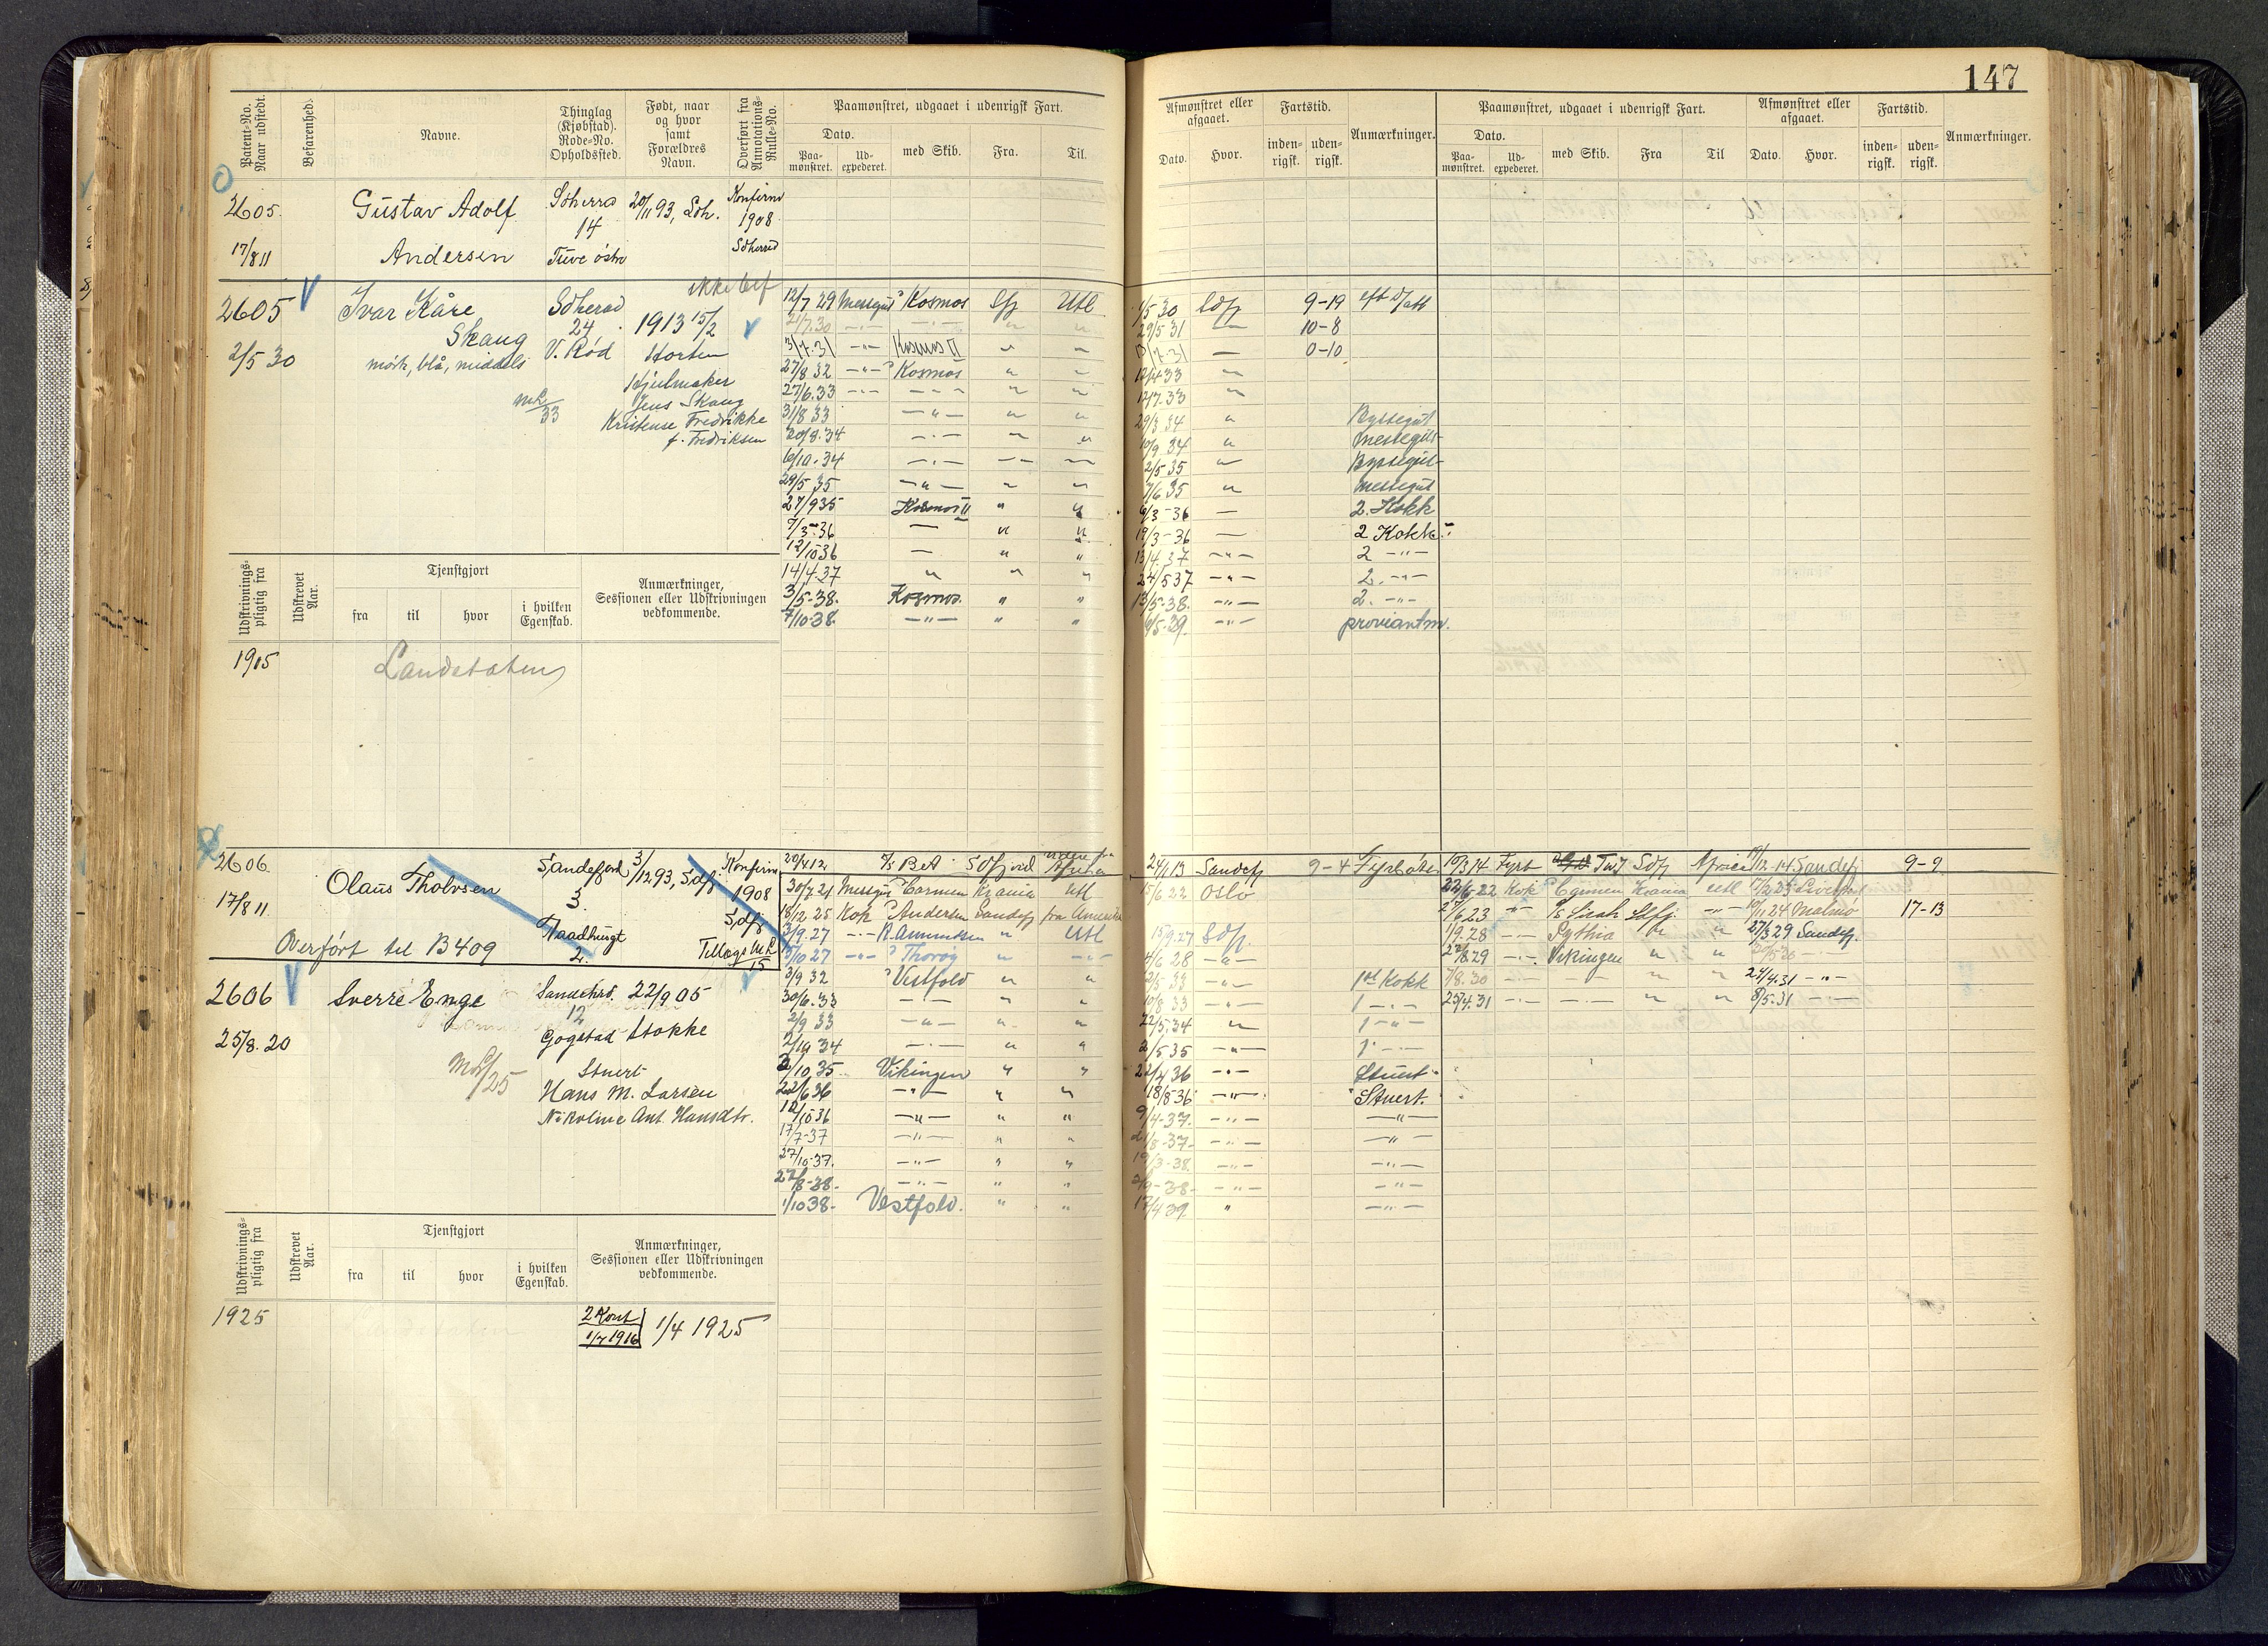 147
Patent-No. Naar udstedt.
Befarenhed.
Navne.
Thinglag (Kjøbstad). Rode-No. Opholdssted.
Født, naar og hvor samt Forældres Navn.
Overført fra Annotations-Rulle-No.
Paamønstret, udgaaet i udenrigsk Fart.
Dato.
Paa-mønstret.
Ud-expederet.
med Skib.
Fra.
Til.
Afmønstret eller afgaaet.
Dato.
Hvor.
Fartstid.
inden-rigsk.
uden-rigsk.
Anmærkninger.
Paamønstret, udgaaet i udenrigsk Fart.
Dato.
Paa-mønstret.
Ud-expederet.
med Skib.
Fra
Til
Afmønstret eller afgaaet.
Dato.
Hvor.
Fartstid.
inden-rigsk.
uden-rigsk.
Anmærkninger.
2605. Gustav Adolf Sdherred 20/11 93, Sdh. Konfirm
14 1908
17/8 11 Andersen Tuve østre Sdherred
ikke bef
2605 Ivar Kåre Sdherad
Skaug 24 1913 15/2
2/5 30 mørk, blå, middels V. Rød Horten
Hjulmaker
Jens Skaug
Kristense Fredrikke
f. Fredriksen
33
12/7 29 Messegut Kosmos Sfj Utl 1/5 30 Sdfj 9-19
21/7.30 29/5 31 — 10-8
3/7.31 Kosmos II — 0-10
27/8 32 Kosmos 33
27/6.33 33
31/8 33 29/3 34 Byssegut
20/8.34 34 Messegut
6/10.34 2/5 35 Byssegut
29/5 35 7/6 35 Messegut
27/9 35 Kosmos II 6/3-36 2. Kokk
7/3-36 19/3-36 2 Kokk
12/10 36 13/4.37 2 -"-
14/4.37 24/5 37 2. -"-
3/5-38. Kosmos. 13/5-38. 2. -"-
7/10-38. 6/5-39. proviantm.
Udskrivnings-pligtig fra
Udskrevet Aar.
Tjenstgjort
fra
til
hvor
i hvilken Egenskab.
Anmærkninger, Sessionen eller Udskrivningen vedkommende.
1915 Landstaten
2606. Olaus Tholvsen Sandefjord 3/12 93, Sdfj. Konfirm
3. 1908
17/8 11 Raadhusgt Sdfj
2.
Overført til B 409 Tillægs
15
20/4 12 Sdfj Afrika 24/1 13 Sandefj 9-4 Fyrbøter 10/3 14 Fyrb Sdfj 14 Sandefj 9-9
2606 Sverre Enge Sandehrd. 22/9 05
12
25/8.20 Gogstad Stokke
25 Stuert
Hans M. Larsen
Nikoline Ant. Hansdtr.
30/7 21 Messgut Carmen Krania Utl 15/6 22 Oslo
22/6 22 Kok Carmen Krania utl
18/12 25 Kok Andersen Sandefj fra Amerika
27/6 23 Sdfj. 24 Malmø 17-13
3/9.27 R. Amundsen Utl 15/9.27 Sdfj.
1/9.28 Pythia 27/3 29 Sandefj.
5/10 27 Thorøy 4/6 28
27/8 29 Vikingen
3/9 32 Vestfold 33 1st Kokk
7/8.30 24/4.31
30/6.33 10/8 33 1 —
25/4.31 8/5.31
2/9 33 22/5.34 1 -"-
2/10 34 2/5 35 1
2/10.35 Vikingen 22/4 36 Stuert
22/6 36 18/8 36 Stuert.
12/10 36 9/4-37.
17/7-37 21/8-37-
27/10-37. 19/3-38.
27/8-38. 2/9-38-
1/10 38- Vestfold. 17/4 39
Udskrivnings-pligtig fra
Udskrevet Aar.
Tjenstgjort
fra
til
hvor
i hvilken Egenskab.
Anmærkninger, Sessionen eller Udskrivningen vedkommende.
1925 2 Kont 1/7 1916 1/4 1925